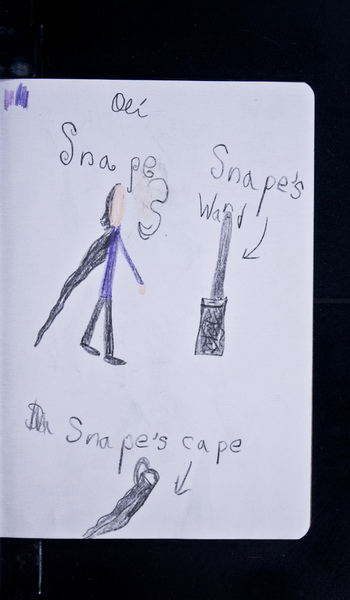 Oli
Snape
Snape's
Wand
Snape's cape